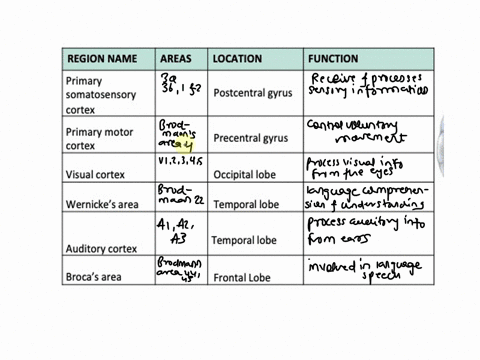 REGION NAME AREAS LOCATION FUNCTION
Primary somatosensory cortex 3a 3b, 1 & 2 Postcentral gyrus Receive & processes sensory information
Primary motor cortex Brod-mann's area 4 Precentral gyrus Control voluntary movement
Visual cortex V1,2,3,4,5 Occipital lobe process visual info from the eyes
Wernicke's area Brod-maan 22 Temporal lobe language comprehen-sion & understanding
Auditory cortex A1, A2, A3 Temporal lobe process auditory info from ears
Broca's area Brodmann area 44, 45 Frontal Lobe involved in language speech